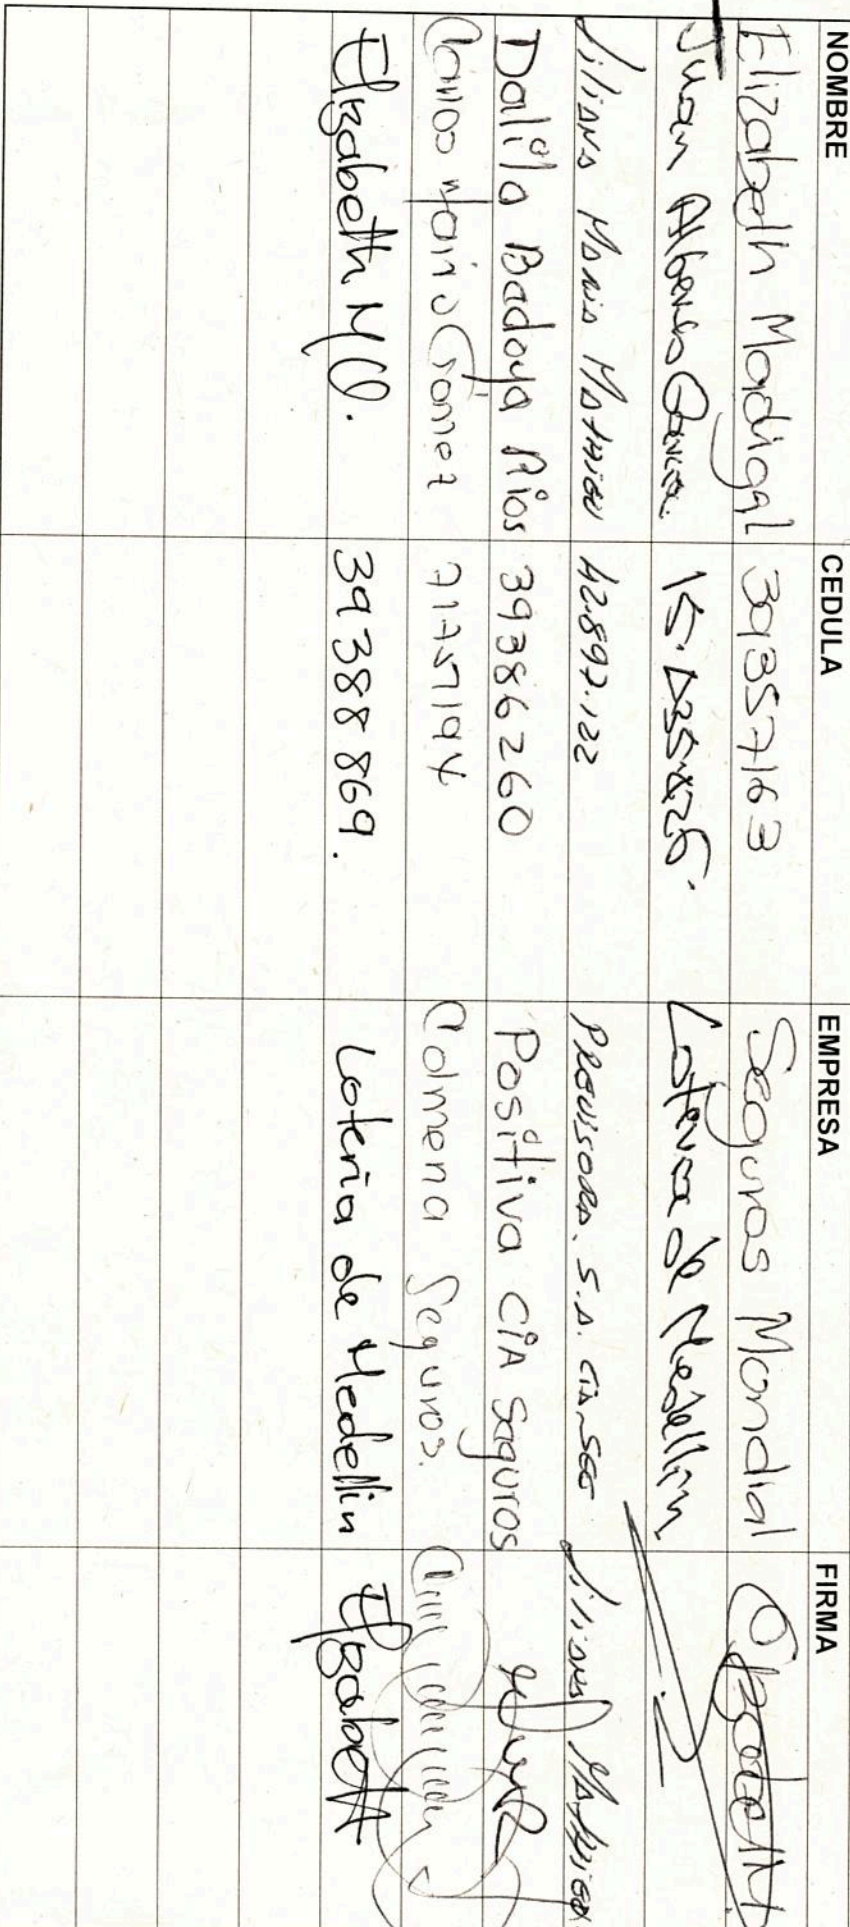 NOMBRE CEDULA EMPRESA FIRMA
Elizabeth Madrigal 39357163 Seguros Mondial
Juan Alberto García. Lotería de Medellín
Liliana Maria Mathieu 42.897.122 Previsora. S.A. Cia. Seg Liliana Mathieu
Dalila Bedoya Rios 39386260 Positiva CIA Seguros
Carlos Mario Gomez 71757194 Colmena Seguros.
Elizabeth M O. 39388869. Lotería de Medellín Elizabeth